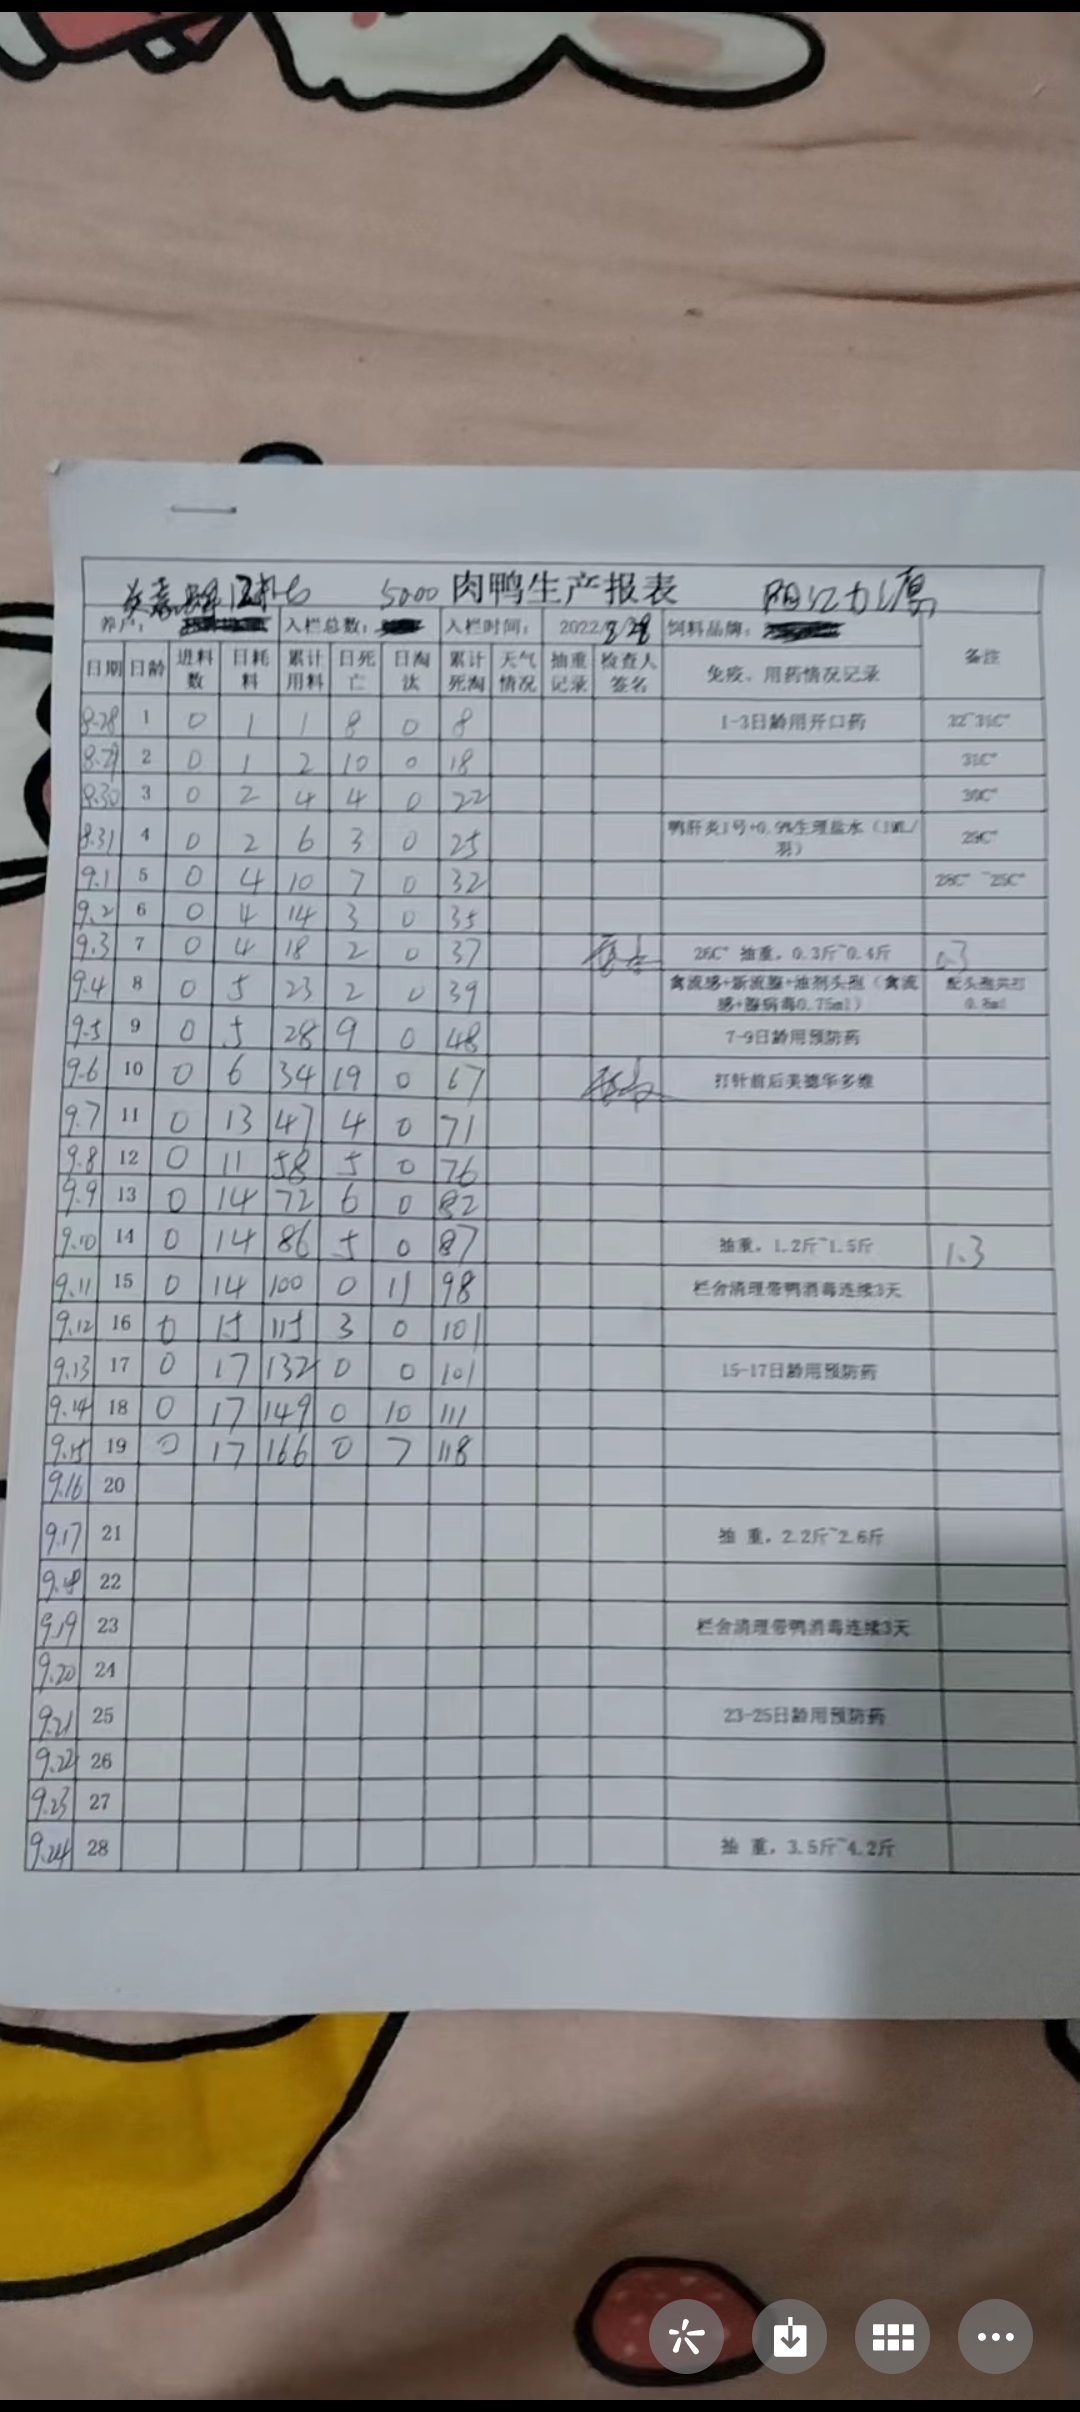 5000 肉鸭生产报表 阳江
养户： 入栏总数： 入栏时间： 2022/8/28 饲料品牌：
日期 日龄 进料数 日耗料 累计用料 日死亡 日淘汰 累计死淘 天气情况 抽重记录 检查人签名 免疫、用药情况记录 备注
8.28 1 0 1 1 8 0 8 1-3日龄用开口药 32~31C°
8.29 2 0 1 2 10 0 18 31C°
8.30 3 0 2 4 4 0 22 30C°
8.31 4 0 2 6 3 0 25 鸭肝炎1号+0.9%生理盐水（1ML/羽） 29C°
9.1 5 0 4 10 7 0 32 28C° ~25C°
9.2 6 0 4 14 3 0 35
9.3 7 0 4 18 2 0 37 26C° 抽重，0.3斤~0.4斤 0.3
9.4 8 0 5 23 2 0 39 禽流感+新流腺+油剂头孢（禽流感+腺病毒0.75ml） 配头孢共打0.8ml
9.5 9 0 5 28 9 0 48 7-9日龄用预防药
9.6 10 0 6 34 19 0 67 打针前后美德华多维
9.7 11 0 13 47 4 0 71
9.8 12 0 11 58 5 0 76
9.9 13 0 14 72 6 0 82
9.10 14 0 14 86 5 0 87 抽重，1.2斤~1.5斤 1.3
9.11 15 0 14 100 0 11 98 栏舍清理带鸭消毒连续3天
9.12 16 0 15 115 3 0 101
9.13 17 0 17 132 0 0 101 15-17日龄用预防药
9.14 18 0 17 149 0 10 111
9.15 19 0 17 166 0 7 118
9.16 20
9.17 21 抽 重，2.2斤~2.6斤
9.18 22
9.19 23 栏舍清理带鸭消毒连续3天
9.20 24
9.21 25 23-25日龄用预防药
9.22 26
9.23 27
9.24 28 抽 重，3.5斤~4.2斤